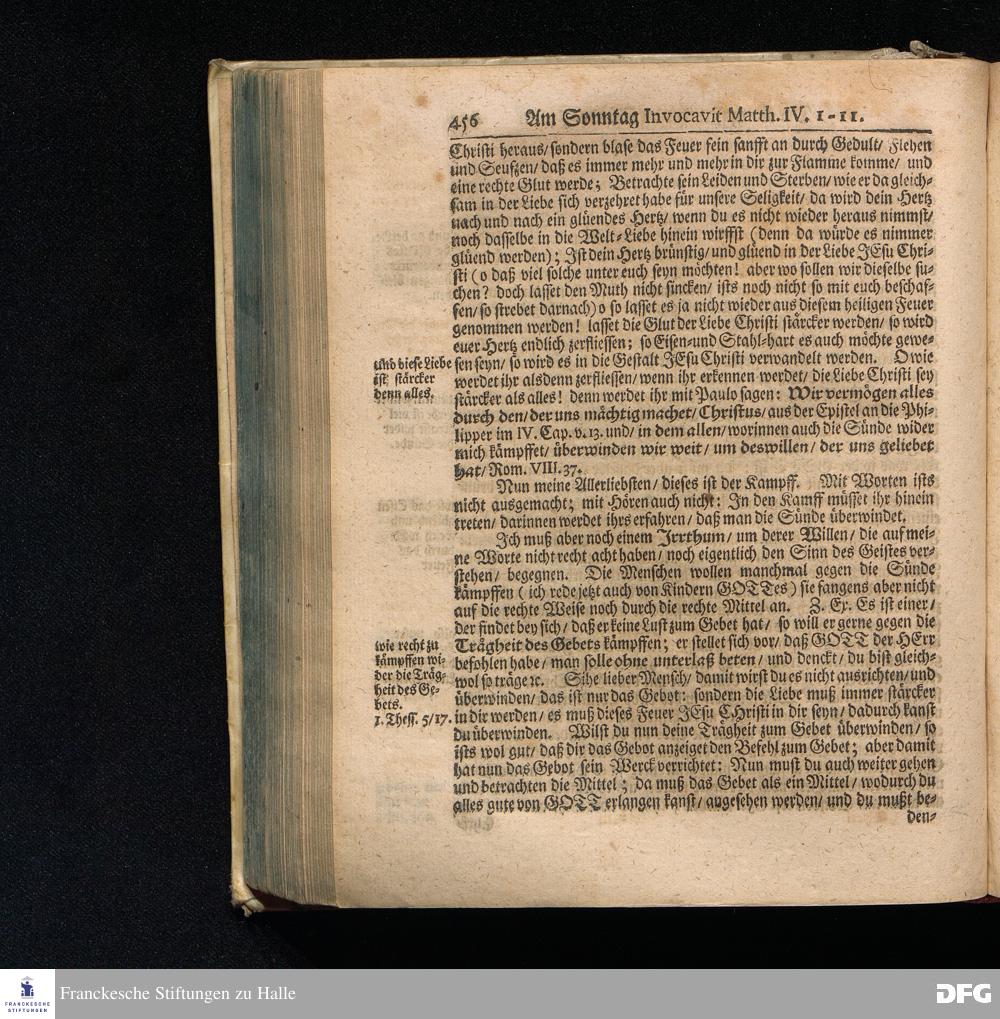 456 Am Sonntag Invocavit Matth. IV. 1-11.
Christi heraus/ sondern blase das Feuer fein sanfft an durch Gedult/ Flehen
und Seufzen/ daß es immer mehr und mehr in dir zur Flamme komme/ und
eine rechte Glut werde; Betrachte sein Leiden und Sterben/ wie er da gleich-
sam in der Liebe sich verzehret habe für unsere Seligkeit/ da wird dein Hertz
nach und nach ein glüendes Hertz/ wenn du es nicht wieder heraus nimmst/
noch dasselbe in die Welt-Liebe hinein wirffst (denn da würde es nimmer
glüend werden); Ist dein Hertz brünstig/ und glüend in der Liebe JEsu Chri-
sti (o daß viel solche unter euch seyn möchten! aber wo sollen wir dieselbe su-
chen? doch lasset den Muth nicht sincken/ ists noch nicht so mit euch beschaf-
fen/ so strebet darnach) o so lasset es ja nicht wieder aus diesem heiligen Feuer
genommen werden! lasset die Glut der Liebe Christi stärcker werden/ so wird
euer Hertz endlich zerfliessen; so Eisen-und Stahl-hart es auch möchte gewe-
sen seyn/ so wird es in die Gestalt JEsu Christi verwandelt werden. O wie
werdet ihr alsdenn zerfliessen/ wenn ihr erkennen werdet/ die Liebe Christi sey
stärcker als alles! denn werdet ihr mit Paulo sagen: Wir vermögen alles
durch den/ der uns mächtig machet/ Christus/ aus der Epistel an die Phi-
lipper im IV. Cap. v. 13. und/ in dem allen/ worinnen auch die Sünde wider
mich kämpffet/ überwinden wir weit/ um deswillen/ der uns geliebet
hat/ Rom. VIII. 37.
und diese Liebe
ist stärcker
denn alles.
Nun meine Allerliebsten/ dieses ist der Kampff. Mit Worten ists
nicht ausgemacht; mit Hören auch nicht: In den Kamff müsset ihr hinein
treten/ darinnen werdet ihrs erfahren/ daß man die Sünde überwindet.
Ich muß aber noch einem Irrthum/ um derer Willen/ die auf mei-
ne Worte nicht recht acht haben/ noch eigentlich den Sinn des Geistes ver-
stehen/ begegnen. Die Menschen wollen manchmal gegen die Sünde
kämpffen (ich rede jetzt auch von Kindern GOTTes) sie fangens aber nicht
auf die rechte Weise noch durch die rechte Mittel an. Z. Ex. Es ist einer/
der findet bey sich/ daß er keine Lust zum Gebet hat/ so will er gerne gegen die
Trägheit des Gebets kämpffen; er stellet sich vor/ daß GOTT der HErr
befohlen habe/ man solle ohne unterlaß beten/ und denckt/ du bist gleich-
wol so träge ꝛc. Sihe lieber Mensch/ damit wirst du es nicht ausrichten/ und
überwinden/ das ist nur das Gebot: sondern die Liebe muß immer stärcker
in dir werden/ es muß dieses Feuer JEsu CHristi in dir seyn/ dadurch kanst
du überwinden. Wilst du nun deine Trägheit zum Gebet überwinden/ so
ists wol gut/ daß dir das Gebot anzeiget den Befehl zum Gebet; aber damit
hat nun das Gebot sein Werck verrichtet: Nun must du auch weiter gehen
und betrachten die Mittel; da muß das Gebet als ein Mittel/ wodurch du
alles gute von GOTT erlangen kanst/ angesehen werden/ und du mußt be-
den-
wie recht zu
kämpffen wi-
der die Träg-
heit des Ge-
bets.
1. Thess. 5/17.
FRANCKESCHE
STIFTUNGEN
Franckesche Stiftungen zu Halle
DFG